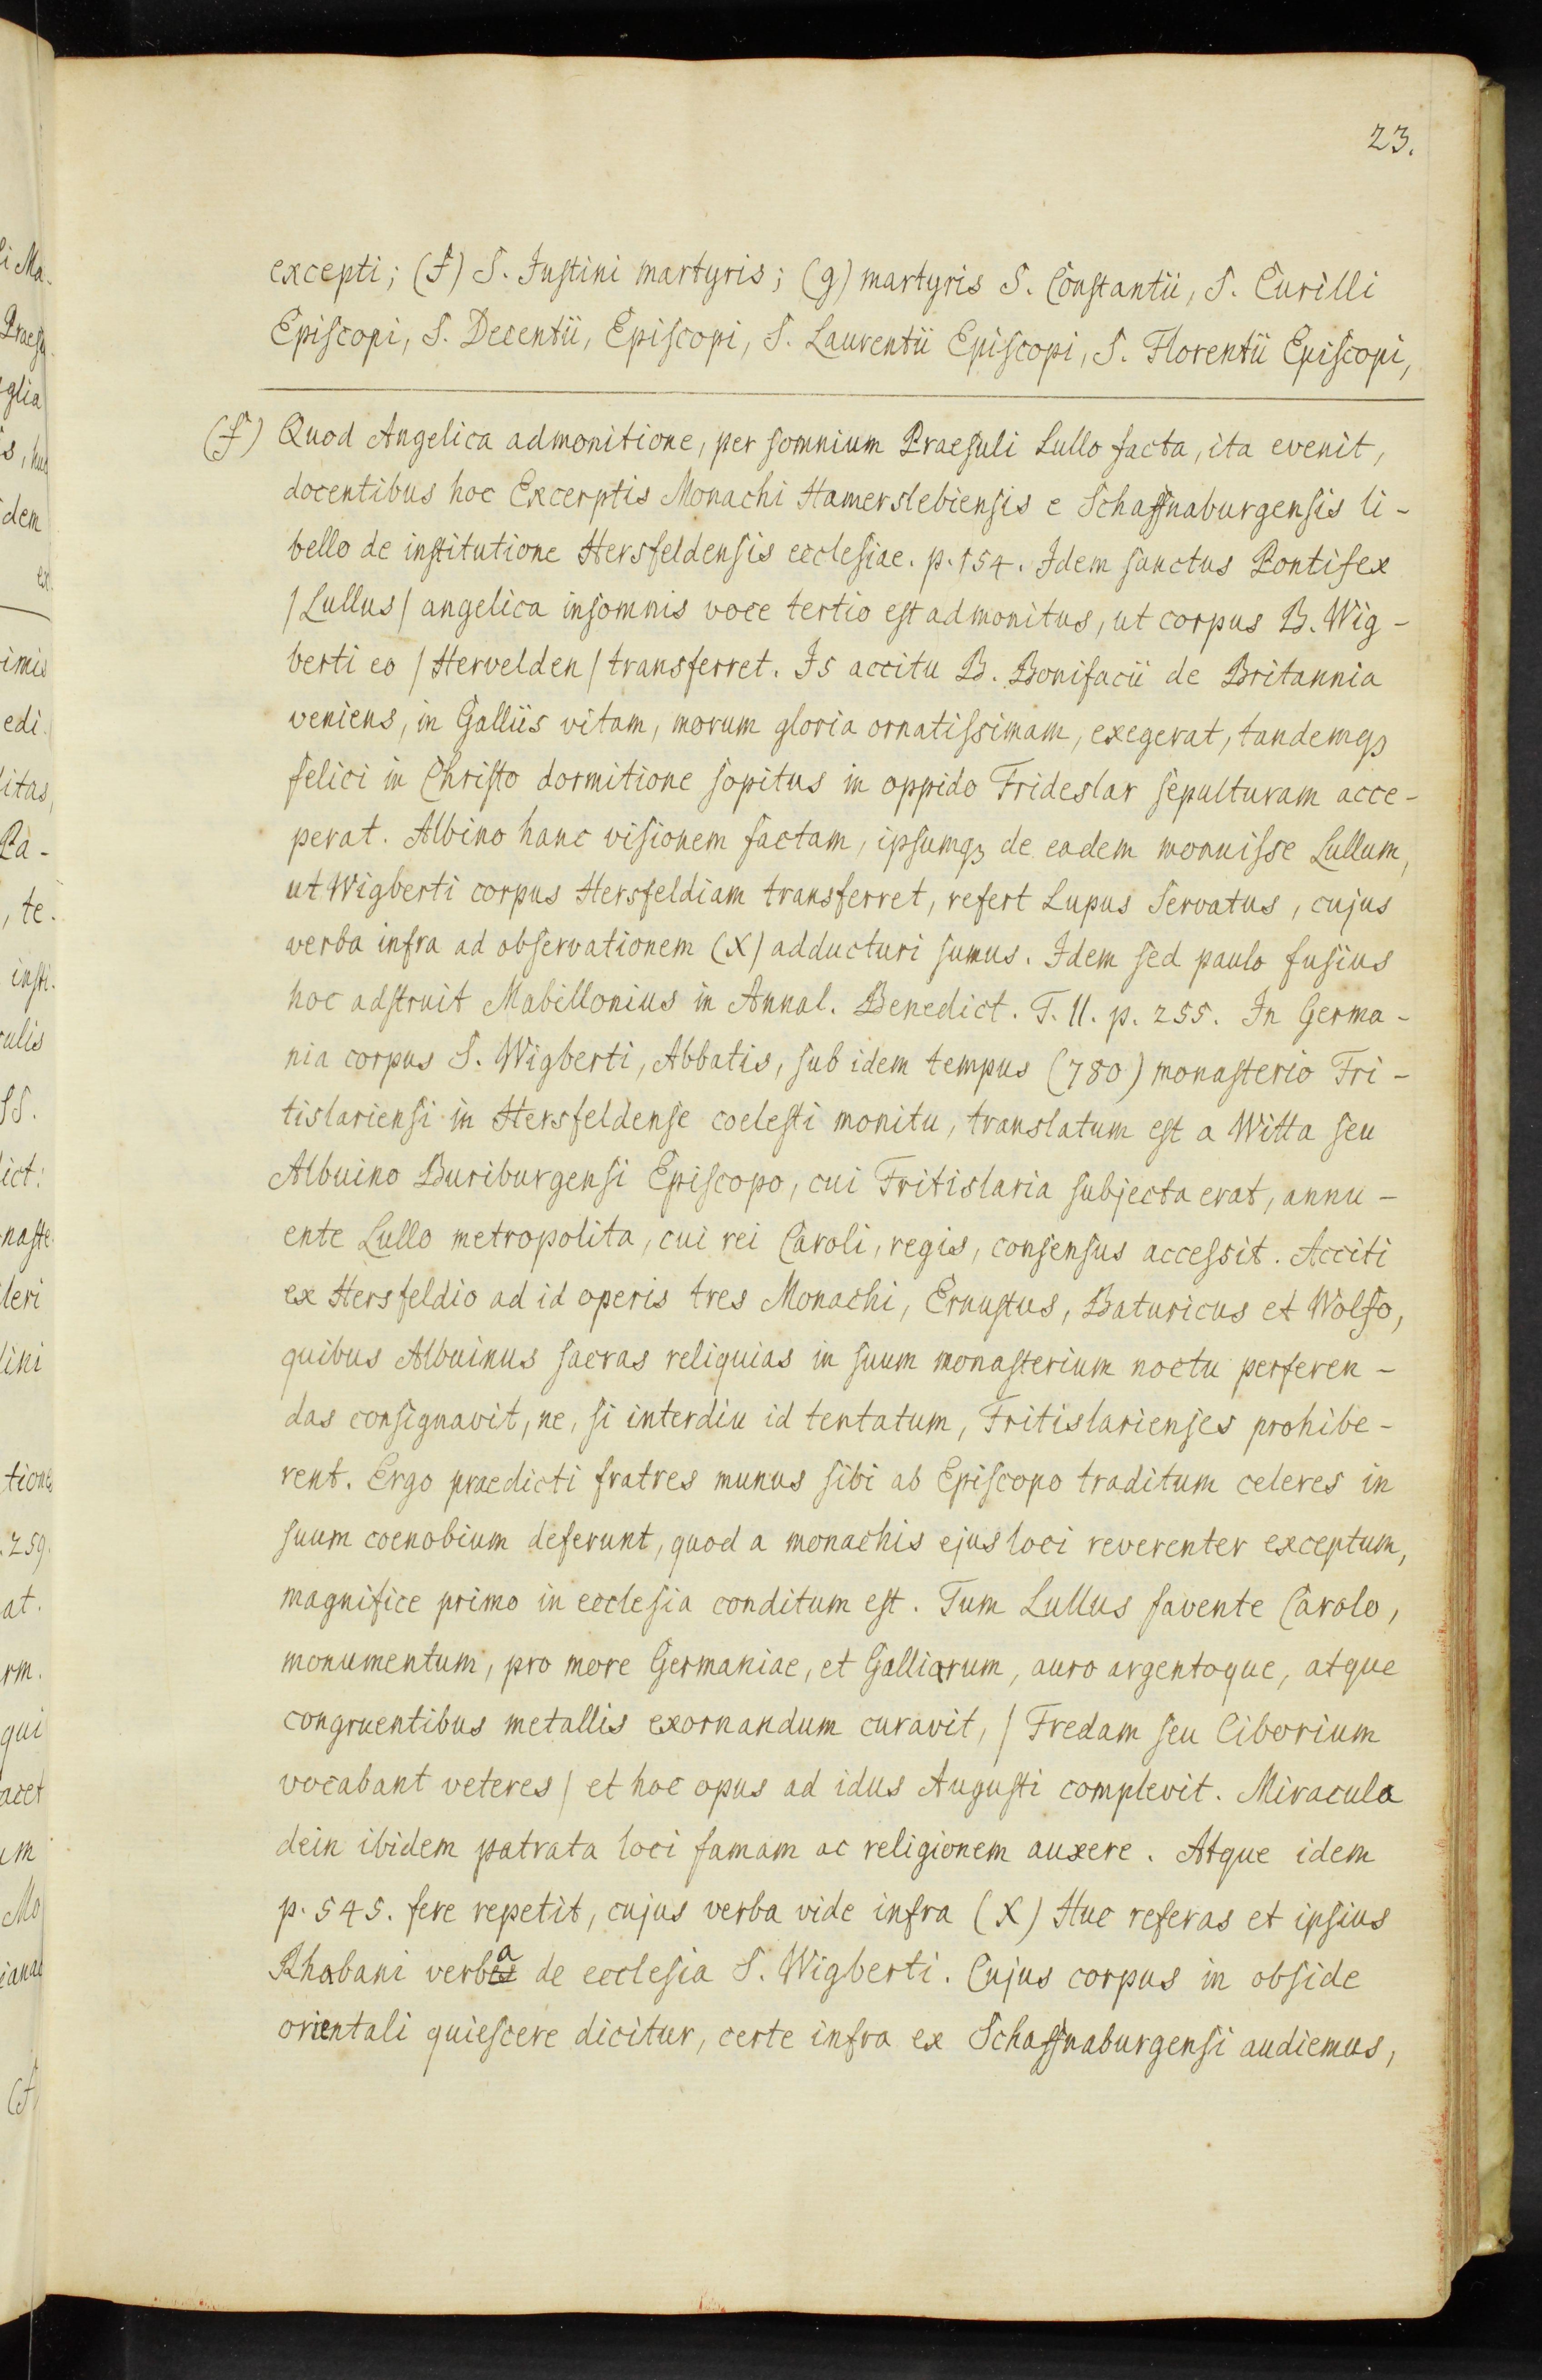 23.
excepti; (f) S. Iustini martyris; (g) martyris S. Constantii, S. Curilli
Episcopi, S. Decentii, Episcopi, S. Laurentii Episcopi, S. Florentii Episcopi,
(f) Quod Angelica admonitione, per somnium Praesuli Lullo facta, ita evenit,
docentibus hoc Excerptis Monachi Hamerslebiensis e Schaffnaburgensis li-
bello de institutione Hersfeldensis ecclesiae. p. 154. Idem sanctus Pontifex
/Lullus/ angelica insomnis voce tertio est admonitus, ut corpus B. Wig-
berti eo /Hervelden/ transferret. Is accitu B. Bonifacii de Britannia
veniens, in Galliis vitam, morum gloria ornatissimam, exegerat, tandemqȝ
felici in Christo dormitione sopitus in oppido Frideslar sepulturam acce-
perat. Albino hanc visionem factam, ipsumqȝ de eadem monuisse Lullum,
ut Wigberti corpus Hersfeldiam transferret, refert Lupus Servatus, cujus
verba infra ad observationem (X) adducturi sumus. Idem sed paulo fusius
hoc adstruit Mabillonius in Annal. Benedict. T. II. p. 255. In Germa-
nia corpus S. Wigberti, Abbatis, sub idem tempus (780) monasterio Fri-
tislariensi in Hersfeldense coelesti monitu, translatum est a Witta seu
Albuino Buriburgensi Episcopo, cui Fritislaria subjecta erat, annu-
ente Lullo metropolita, cui rei Caroli, regis, consensus accessit. Acciti
ex Hersfeldio ad id operis tres Monachi, Ernustus, Baturicus et Wolfo,
quibus Albuinus sacras reliquias in suum monasterium noctu perferen-
das consignavit, ne, si interdiu id tentatum, Fritislarienses prohibe-
rent. Ergo praedicti fratres munus sibi ab Episcopo traditum celeres in
suum coenobium deferunt, quod a monachis ejus loci reverenter exceptum,
magnifice primo in ecclesia conditum est. Tum Lullus favente Carolo,
monumentum, pro more Germaniae, et Galliarum, auro argentoque, atque
congruentibus metallis exornandum curavit, /Fredam seu Ciborium
vocabant veteres/ et hoc opus ad idus Augusti complevit. Miracula
dein ibidem patrata loci famam ac religionem auxere. Atque idem
p. 545. fere repetit, cujus verba vide infra (X) Huc referas et ipsius
Rhabani verba de ecclesia S. Wigberti. Cujus corpus in obside
orientali quiescere dicitur, certe infra ex Schaffnaburgensi audiemus,